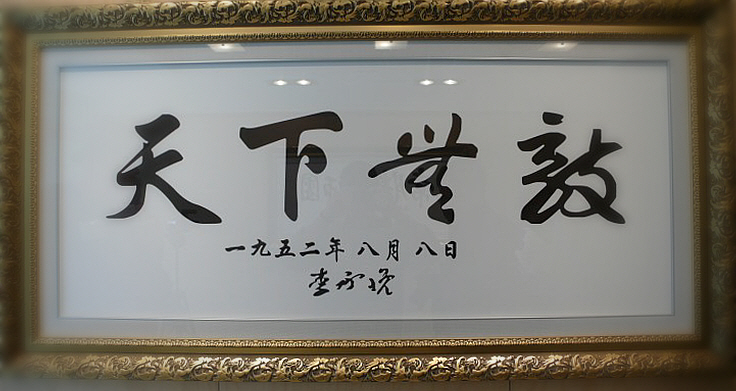 天下無敵
一九五二年 八月 八日
李承晩